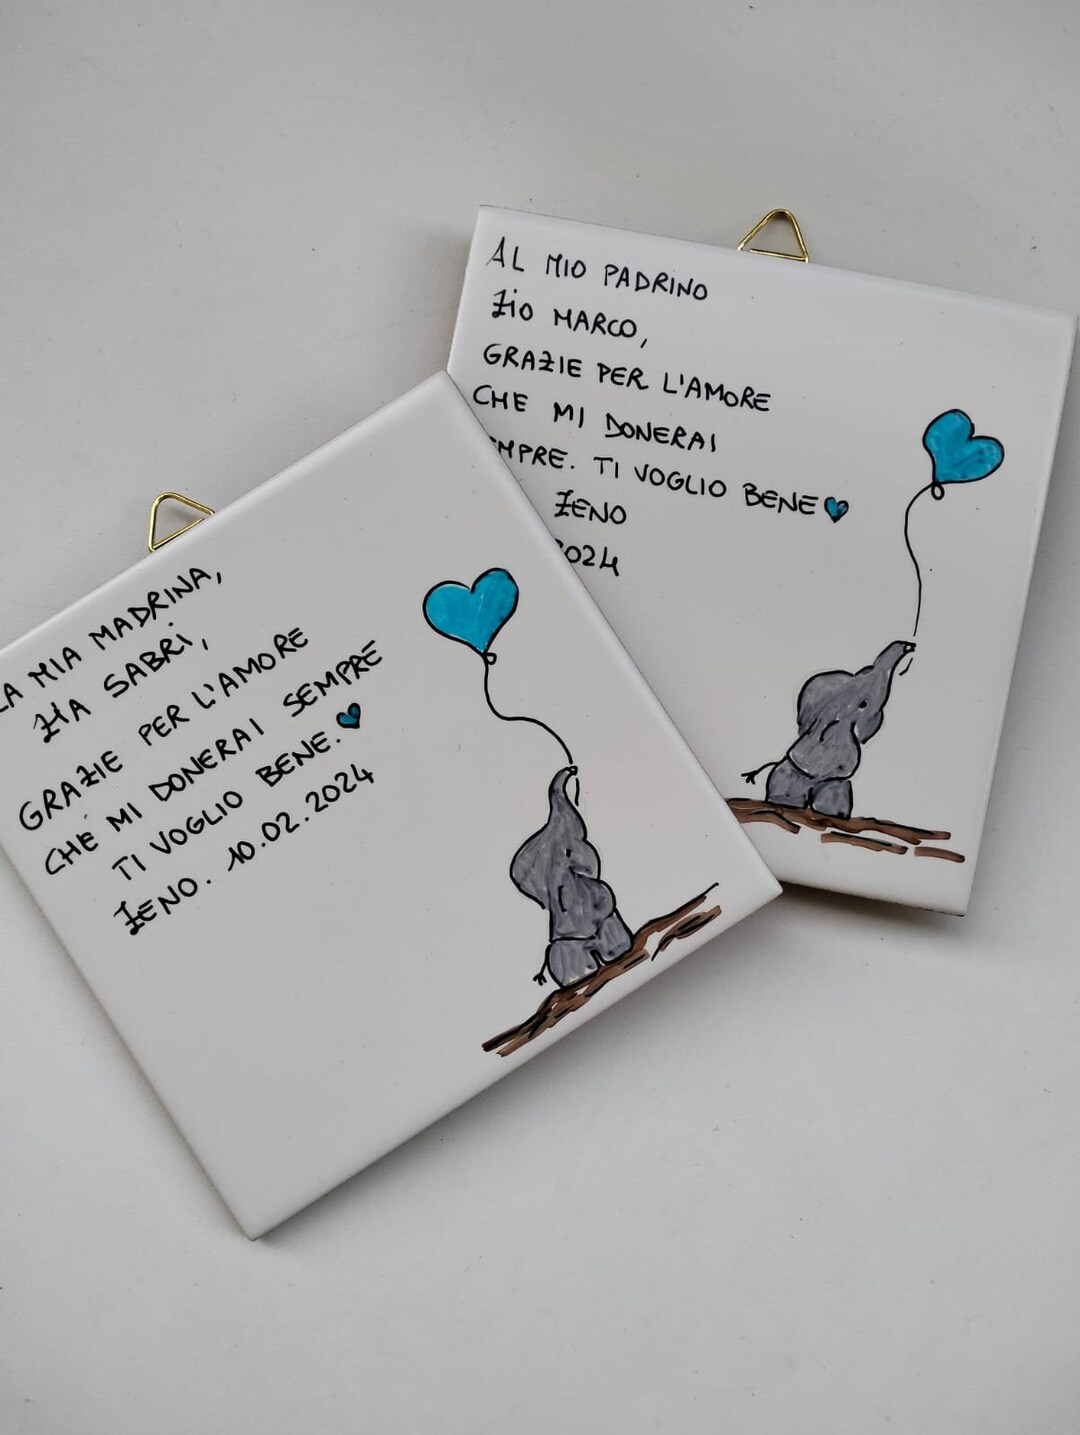 AL MIO PADRINO
ZIO MARCO,
GRAZIE PER L'AMORE
CHE MI DONERAI
MPRE. TI VOGLIO BENE
ZENO
2024
LA MIA MADRINA,
ZIA SABRI,
GRAZIE PER L'AMORE
CHE MI DONERAI SEMPRE
TI VOGLIO BENE.
ZENO. 10.02.2024